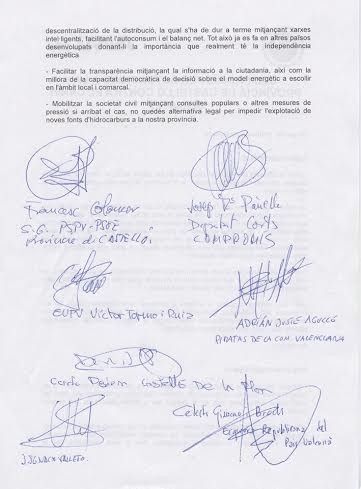 descentralització de la distribució, la qual s'ha de dur a terme mitjançant xarxes
intel·ligents, facilitant l'autoconsum i el balanç net. Tot això ja es fa en altres països
desenvolupats donant-li la importància que realment té la independència
energètica
- Facilitar la transparència mitjançant la informació a la ciutadania, així com la
millora de la capacitat democràtica de decisió sobre el model energètic a escollir
en l'àmbit local i comarcal.
- Mobilitzar la societat civil mitjançant consultes populars o altres mesures de
pressió si arribat el cas, no quedés alternativa legal per impedir l'explotació de
noves fonts d'hidrocarburs a la nostra província.
Francesc Colomer
S.G. PSPV-PSOE
província de CASTELLÓ
Josep Mª Panella
Diputat Corts
COMPROMIS
EUPV Victor Tormo i Ruiz
ADRIÁN
PIRATAS DE LA COM. VALENCIANA
Podem Castelló De la Plana
Esquerra Republicana del
País Valencià